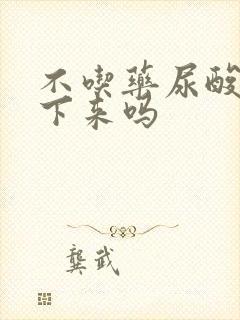 不喫藥尿酸
下来吗
龔武